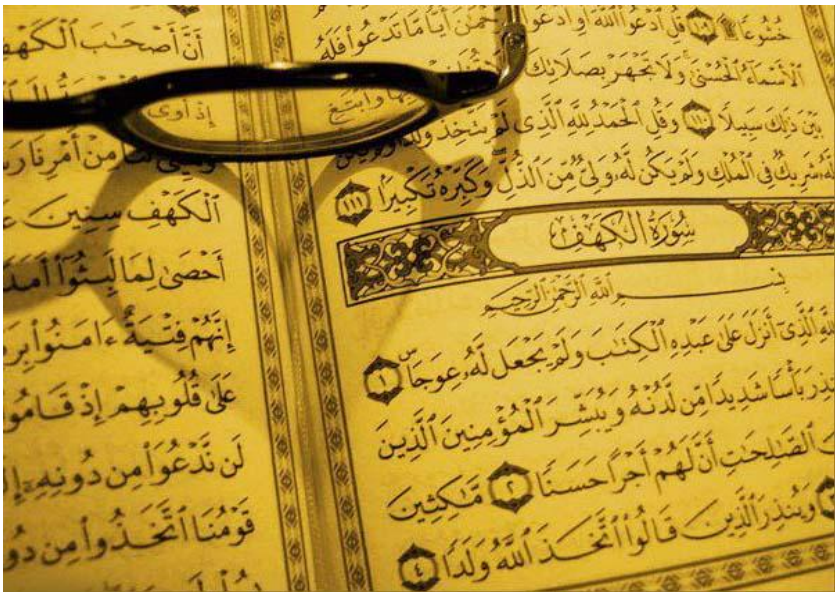 خُشُوعًا ۩ ١٠٩ قُلِ ٱدْعُوا۟ ٱللَّهَ أَوِ ٱدْعُوا۟ حْمَٰنَ أَيًّا مَّا تَدْعُوا۟ فَلَهُ
ٱلْأَسْمَآءُ ٱلْحُسْنَىٰ وَلَا تَجْهَرْ بِصَلَاتِكَ وَٱبْتَغِ
بَيْنَ ذَٰلِكَ سَبِيلًا ١١٠ وَقُلِ ٱلْحَمْدُ لِلَّهِ ٱلَّذِى لَمْ يَتَّخِذْ وَلَدًا
لَّهُۥ شَرِيكٌ فِى ٱلْمُلْكِ وَلَمْ يَكُن لَّهُۥ وَلِىٌّ مِّنَ ٱلذُّلِّ وَكَبِّرْهُ تَكْبِيرًۢا ١١١
سُورَةُ الكَهْفِ
بِسْمِ ٱللَّهِ ٱلرَّحْمَٰنِ ٱلرَّحِيمِ
لِلَّهِ ٱلَّذِىٓ أَنزَلَ عَلَىٰ عَبْدِهِ ٱلْكِتَٰبَ وَلَمْ يَجْعَل لَّهُۥ عِوَجَاۜ ١
نذِرَ بَأْسًا شَدِيدًا مِّن لَّدُنْهُ وَيُبَشِّرَ ٱلْمُؤْمِنِينَ ٱلَّذِينَ
ٱلصَّٰلِحَٰتِ أَنَّ لَهُمْ أَجْرًا حَسَنًا ٢ مَّٰكِثِينَ
وَيُنذِرَ ٱلَّذِينَ قَالُوا۟ ٱتَّخَذَ ٱللَّهُ وَلَدًا ٤
أَنَّ أَصْحَٰبَ ٱلْكَهْفِ
إِذْ أَوَى
مِنْ أَمْرِنَا رَشَ
ٱلْكَهْفِ سِنِينَ عَ
أَحْصَىٰ لِمَا لَبِثُوٓا۟ أَمَدً
إِنَّهُمْ فِتْيَةٌ ءَامَنُوا۟ بِرَ
عَلَىٰ قُلُوبِهِمْ إِذْ قَامُو
لَن نَّدْعُوَا۟ مِن دُونِهِۦٓ إِ
قَوْمُنَا ٱتَّخَذُوا۟ مِن دُو